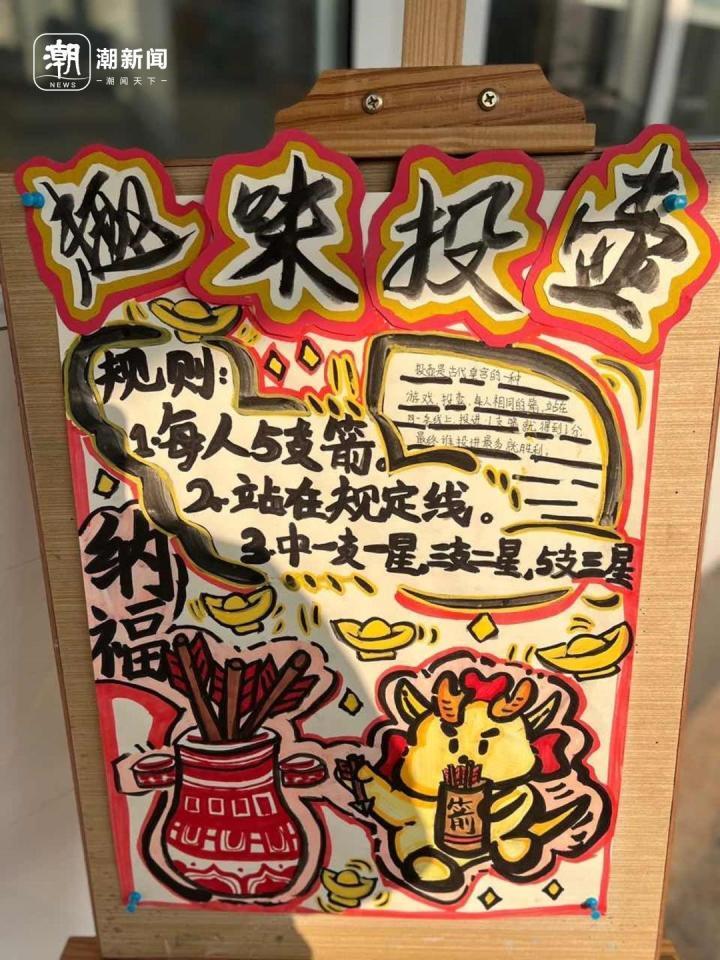 潮
NEWS
潮新闻
潮闻天下
趣味投壶
规则:
1.每人5支箭。
2.站在规定线。
3.中一支一星,二支二星,5支三星
投壶是古代皇宫的一种
游戏,投壶,每人相同的箭,站在
同一条线上,投进1支箭就得到1分,
最终谁投进最多就胜利。
纳
福
箭